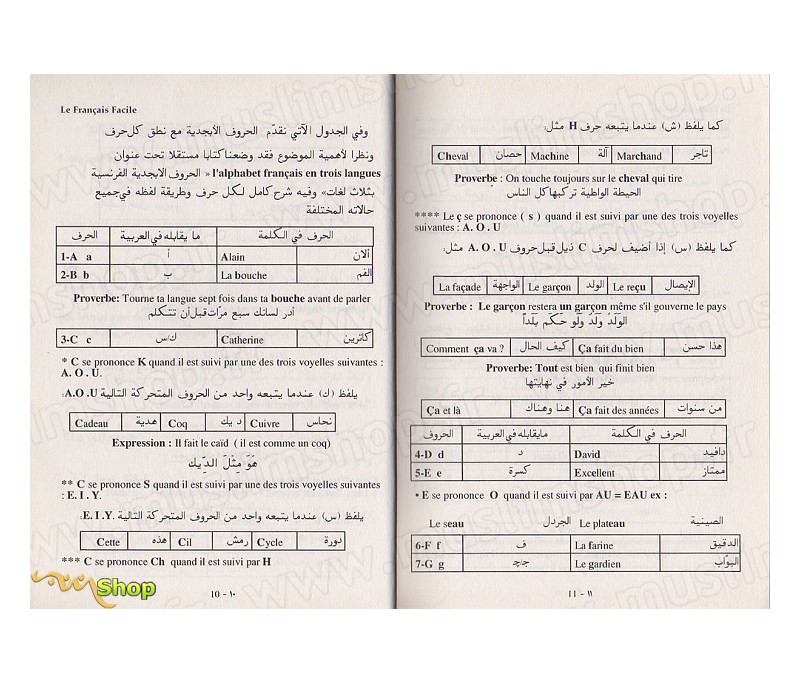 Le Français Facile
وفي الجدول الآتي نقدّم الحروف الأبجدية مع نطق كل حرف
ونظرا لأهمية الموضوع فقد وضعنا كتابا مستقلا تحت عنوان
l'alphabet français en trois langues » الحروف الابجدية الفرنسية
بثلاث لغات» وفيه شرح كامل لكل حرف وطريقة لفظه في جميع
حالاته المختلفة
الحرف ما يقابله في العربية الحرف في الكلمة
1-A a أ Alain ألان
2-B b ب La bouche الفم
Proverbe: Tourne ta langue sept fois dans ta bouche avant de parler
أدر لسانك سبع مرّات قبل أن تتكلم
3-C c ك/س Catherine كاترين
* C se prononce K quand il est suivi par une des trois voyelles suivantes :
A. O. U.
يلفظ (ك) عندما يتبعه واحد من الحروف المتحركة التالية A.O.U:
Cadeau هدية Coq ديك Cuivre نحاس
Expression : Il fait le caïd ( il est comme un coq)
هُوَ مِثْلَ الدِّيك
** C se prononce S quand il est suivi par une des trois voyelles suivantes
: E. I. Y.
يلفظ (س) عندما يتبعه واحد من الحروف المتحركة التالية E.I.Y:
Cette هذه Cil رمش Cycle دورة
*** C se prononce Ch quand il est suivi par H
10 - ١٠
Shop
كما يلفظ (ش) عندما يتبعه حرف H مثل:
Cheval حصان Machine آلة Marchand تاجر
Proverbe : On touche toujours sur le cheval qui tire
الحيطة الواطية تركبها كل الناس
**** Le ç se prononce ( s ) quand il est suivi par une des trois voyelles
suivantes : A. O . U
كما يلفظ (س) إذا أضيف لحرف C ذيل قبل حروف A. O . U مثل:
La façade الواجهة Le garçon الولد Le reçu الإيصال
Proverbe : Le garçon restera un garçon même s'il gouverne le pays
الوَلَدُ وَلَدٌ وَلَو حَكَم بَلَداً
Comment ça va ? كيف الحال Ça fait du bien هذا حسن
Proverbe: Tout est bien qui finit bien
خير الأمور في نهايتها
Ça et là هنا وهناك Ça fait des années من سنوات
الحروف مايقابله في العربية الحرف في الكلمة
4-D d د David دافيد
5-E e كسرة Excellent ممتاز
• E se prononce O quand il est suivi par AU = EAU ex :
Le seau الجردل Le plateau الصينية
6-F f ف La farine الدقيق
7-G g ج/چ Le gardien البوّاب
11 - ١١
www.muslimshop.fr